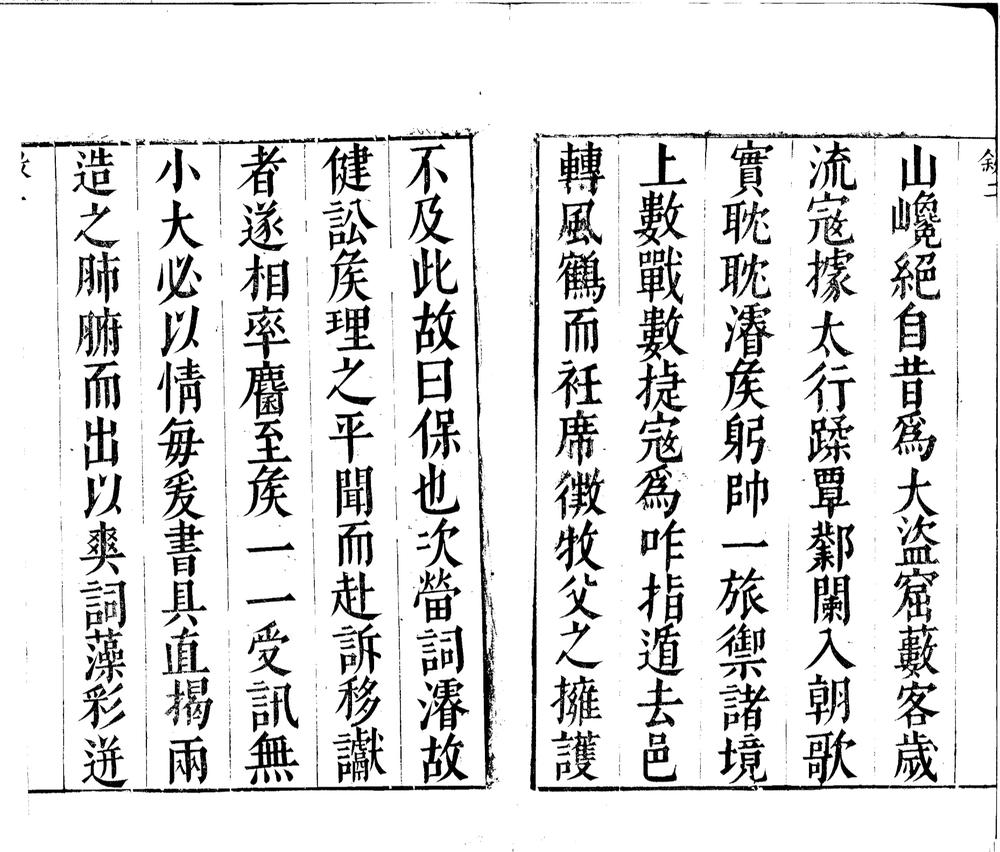 敘二
山巉絕自昔爲大盜窟藪客歲
流寇據太行蹂覃鄴闌入朝歌
實耽耽濬矦躬帥一旅禦諸境
上數戰數捷寇爲咋指遁去邑
轉風鶴而袵席徵牧父之擁護
不及此故曰保也次嘗詞濬故
健訟矦理之平聞而赴訴移讞
者遂相率麕至矦一一受訊無
小大必以情每爰書具直揭兩
造之肺腑而出以爽詞藻彩逬